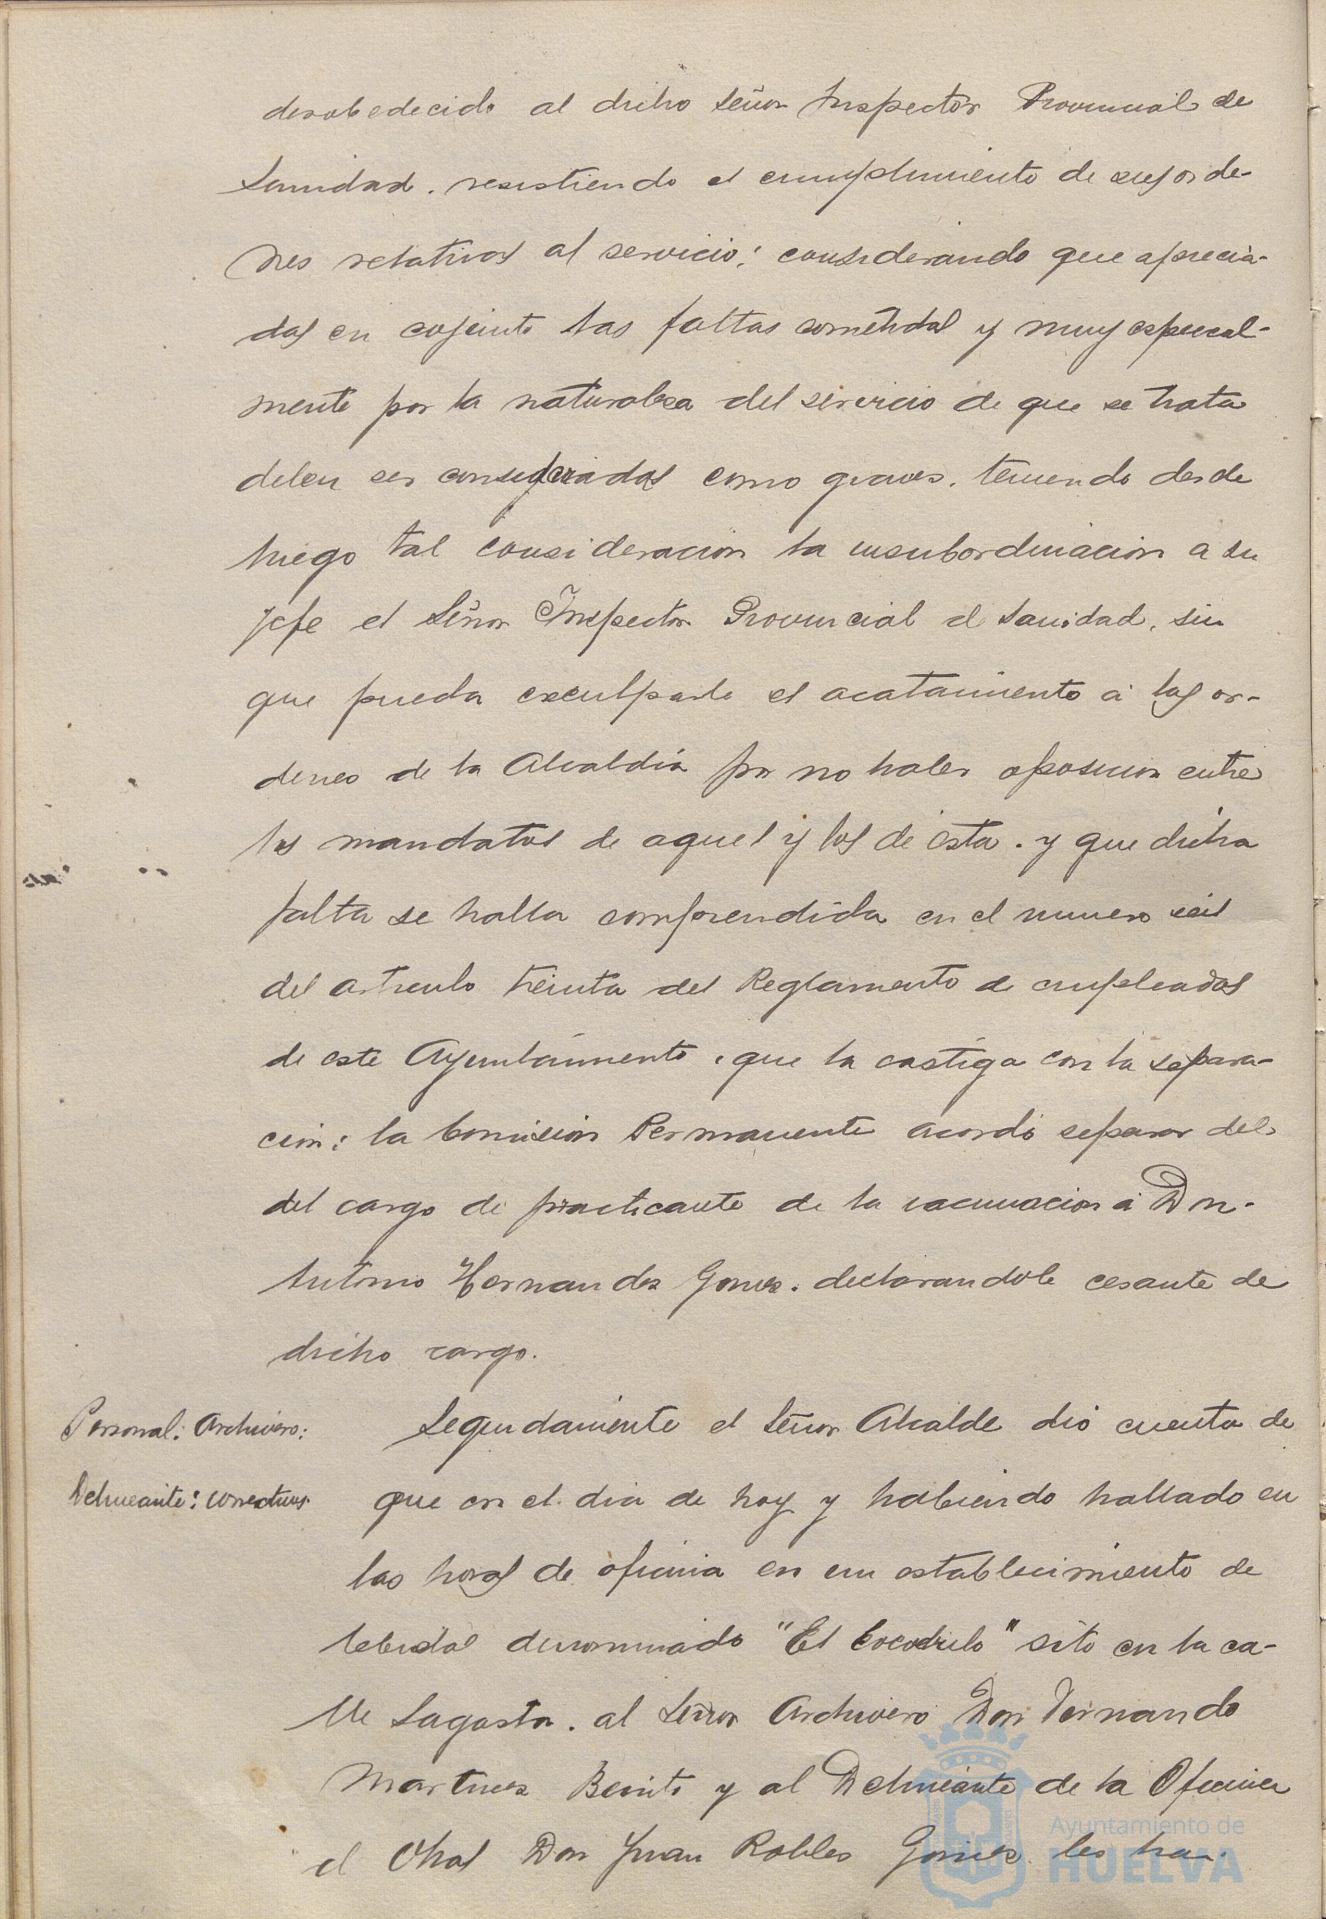 desobedecido al dicho Señor Inspector Provincial de
Sanidad. resistiendo el cumplimiento de sus orde-
nes relativas al servicio: considerando que aprecia-
das en cojunto las faltas cometidas y muy especial-
mente por la naturaleza del servicio de que se trata
deben ser consideradas como graves. teniendo desde
luego tal consideracion la insubordinacion a su
jefe el Señor Inspector Provincial de Sanidad, sin
que pueda exculparle el acatamiento á las or-
denes de la Alcaldía por no haber oposicion entre
los mandatos de aquel y los de esta. y que dicha
falta se halla comprendida en el numero seis
del articulo treinta del Reglamento de empleados
de este Ayuntamiento, que la castiga con la separa-
cion: la Comision Permanente acordó separar del
del cargo de practicante de la vacunacion á Dn.
Antonio Hernandez Gomez. declarandole cesante de
dicho cargo.
Personal: Archivero:
Delineante: correctivos.
Seguidamente el Señor Alcalde dió cuenta de
que en el dia de hoy y habiendo hallado en
las horas de oficina en un establecimiento de
bebidas denominado "El Cocodrilo" sito en la ca-
lle Sagasta. al Señor Archivero Don Fernando
Martinez Benito y al Delineante de la Oficina
de Obras Don Juan Robles Gomez les ha.
Ayuntamiento de
HUELVA